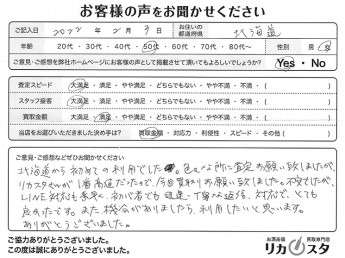 お客様の声をお聞かせください
ご記入日 2022年2月9日 お住いの都道府県 北海道
年齢 20代・30代・40代・50代・60代・70代・80代〜 性別 男・女
ご意見・ご感想を弊社ホームページにお客様の声として掲載させて頂いてもよろしいでしょうか? Yes・No
査定スピード 大満足・満足・やや満足・どちらでもない・やや不満・不満・( )
スタッフ接客 大満足・満足・やや満足・どちらでもない・やや不満・不満・( )
買取金額 大満足・満足・やや満足・どちらでもない・やや不満・不満・( )
当店をお選びいただきました決め手は? 買取金額・対応力・利便性・スピード・その他( )
ご意見・ご感想などぜひお聞かせください
北海道から初めての利用でした。色々な所に査定お願い致しましたが、
リカスタさんが1番高値だったので、今回買取りお願い致しました。不安でしたが、
LINE対応も素早く、初心者でも迅速、丁寧な返信、対応で、とても
良かったです。また機会がありましたら、利用したいと思います。
ありがとうございました。
ご協力ありがとうございました。
この度は誠にありがとうございました。
お酒高価買取専門店
リカスタ